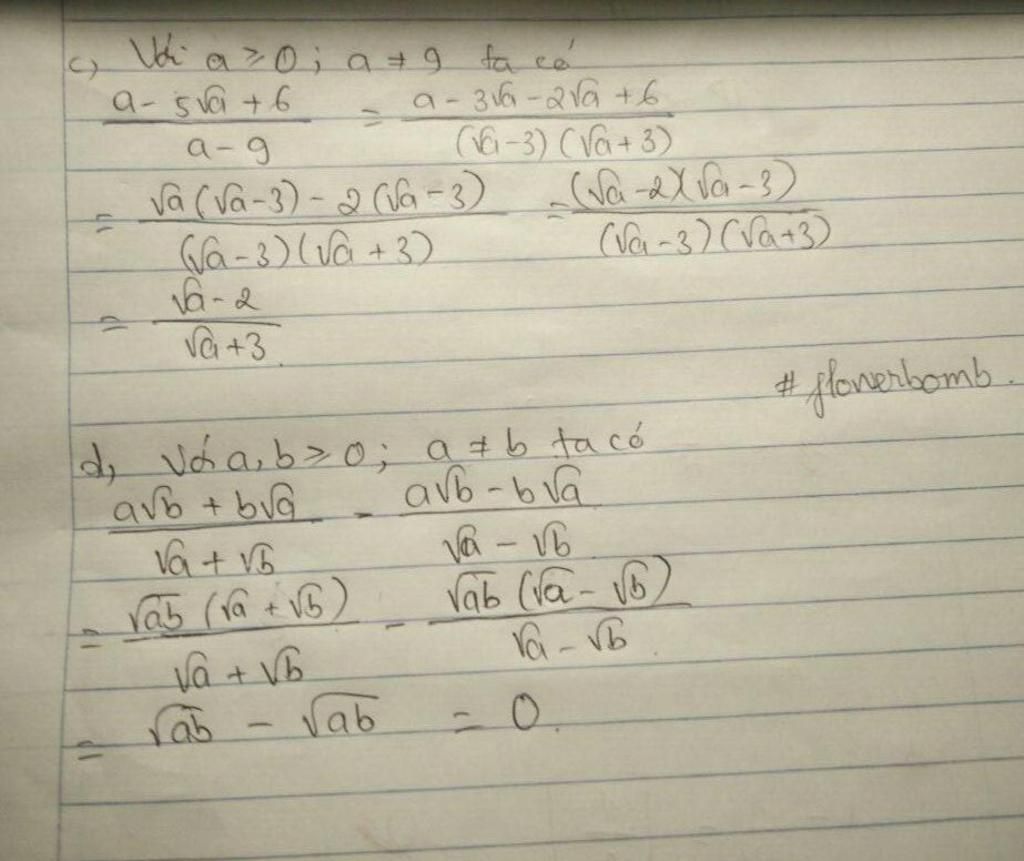 c, Với a ≥ 0 ; a ≠ 9 ta có
(a - 5√a + 6)/(a - 9) = (a - 3√a - 2√a + 6)/((√a - 3)(√a + 3))
= (√a(√a - 3) - 2(√a - 3))/((√a - 3)(√a + 3)) = ((√a - 2)(√a - 3))/((√a - 3)(√a + 3))
= (√a - 2)/(√a + 3).
# flowerbomb.
d, Với a, b ≥ 0 ; a ≠ b ta có
(a√b + b√a)/(√a + √b) - (a√b - b√a)/(√a - √b)
= (√ab (√a + √b))/(√a + √b) - (√ab (√a - √b))/(√a - √b).
= √ab - √ab = 0.